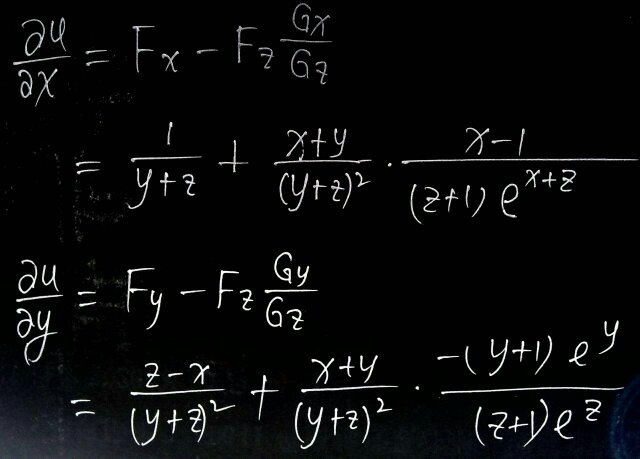 ∂u/∂x = Fx − Fz Gx/Gz
= 1/(y+z) + (x+y)/(y+z)² · (x−1)/((z+1) e^(x+z))
∂u/∂y = Fy − Fz Gy/Gz
= (z−x)/(y+z)² + (x+y)/(y+z)² · (−(y+1) e^y)/((z+1) e^z)